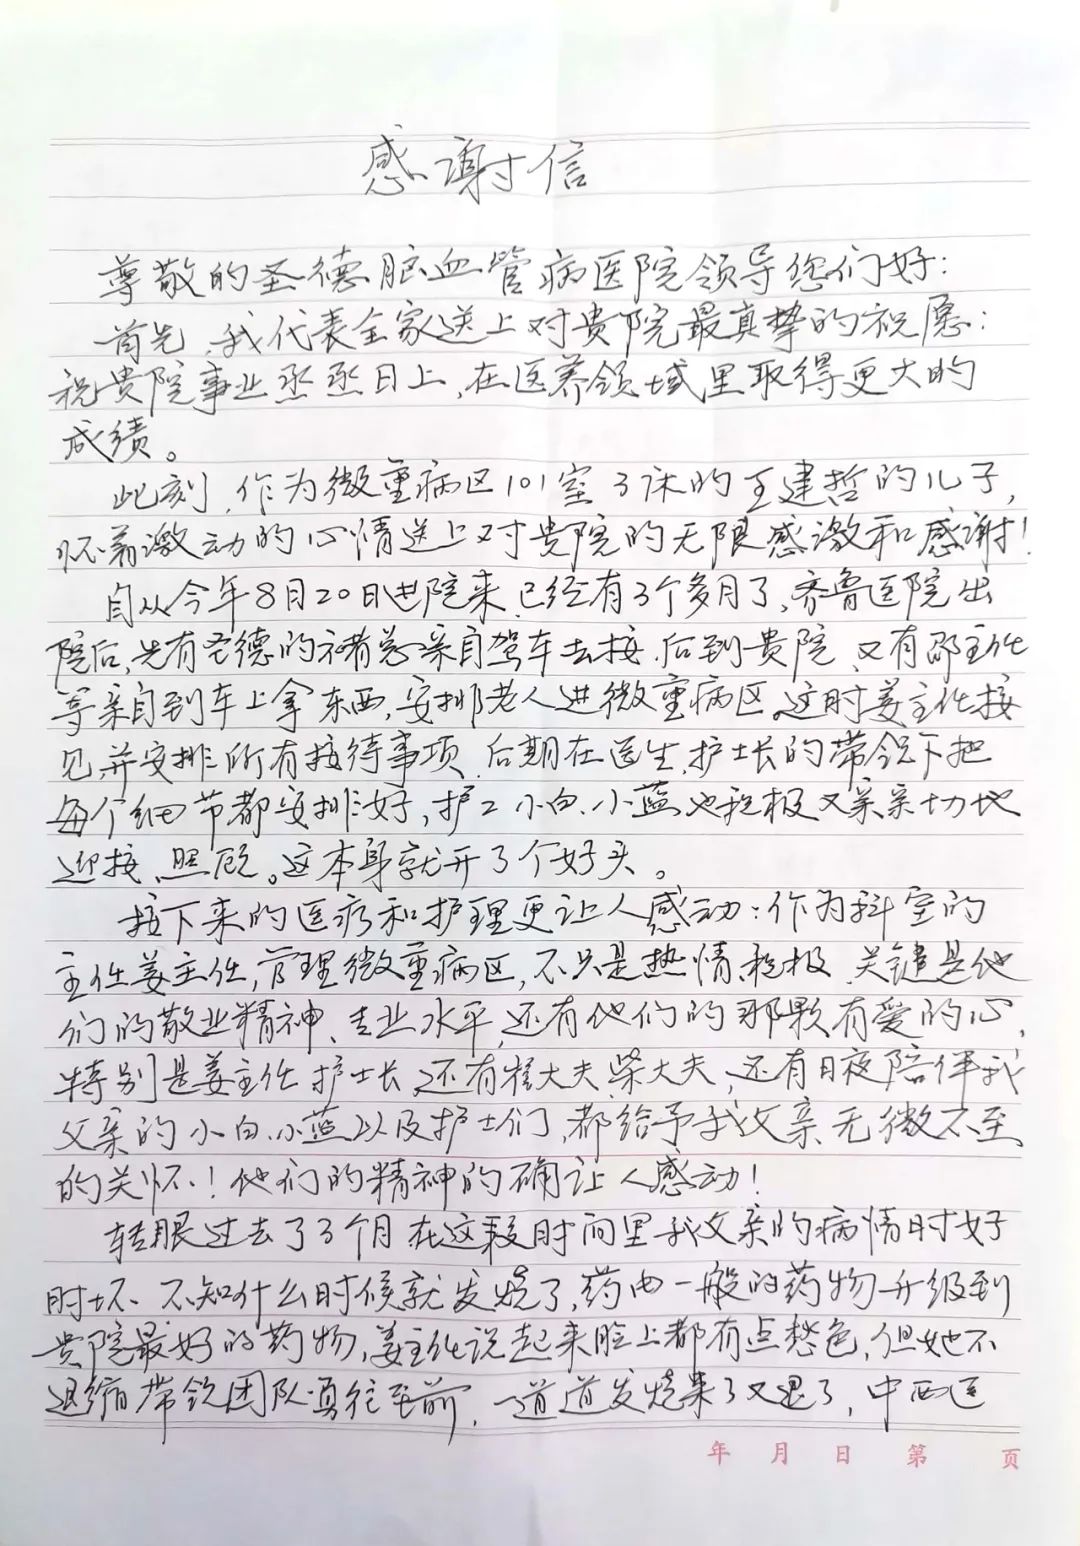 感谢信
尊敬的圣德脑血管病医院领导您们好：
首先，我代表全家送上对贵院最真挚的祝愿：
祝贵院事业蒸蒸日上，在医养领域里取得更大的
成绩。
此刻，作为微重病区101室3床的王建哲的儿子，
怀着激动的心情送上对贵院的无限感激和感谢！
自从今年8月20日进院来，已经有3个多月了，齐鲁医院出
院后，先有圣德的褚总亲自驾车去接，后到贵院，又有邵主任
等亲自到车上拿东西，安排老人进微重病区，这时姜主任接
见并安排所有接待事项，后期在医生、护士长的带领下把
每个细节都安排好，护工小白、小蓝也积极又亲亲切地
迎接、照顾。这本身就开了个好头。
接下来的医疗和护理更让人感动：作为科室的
主任姜主任，管理微重病区，不只是热情、积极，关键是他
们的敬业精神、专业水平，还有他们的那颗有爱的心，
特别是姜主任、护士长，还有崔大夫、柴大夫，还有日夜陪伴我
父亲的小白、小蓝以及护士们，都给予我父亲无微不至
的关怀！他们的精神的确让人感动！
转眼过去了3个月，在这段时间里我父亲的病情时好
时坏，不知什么时候就发烧了，药由一般的药物升级到
贵院最好的药物，姜主任说起来脸上都有点愁色，但她不
退缩，带领团队勇往至前，一道道发烧来了又退了，中西医
年 月 日 第 页